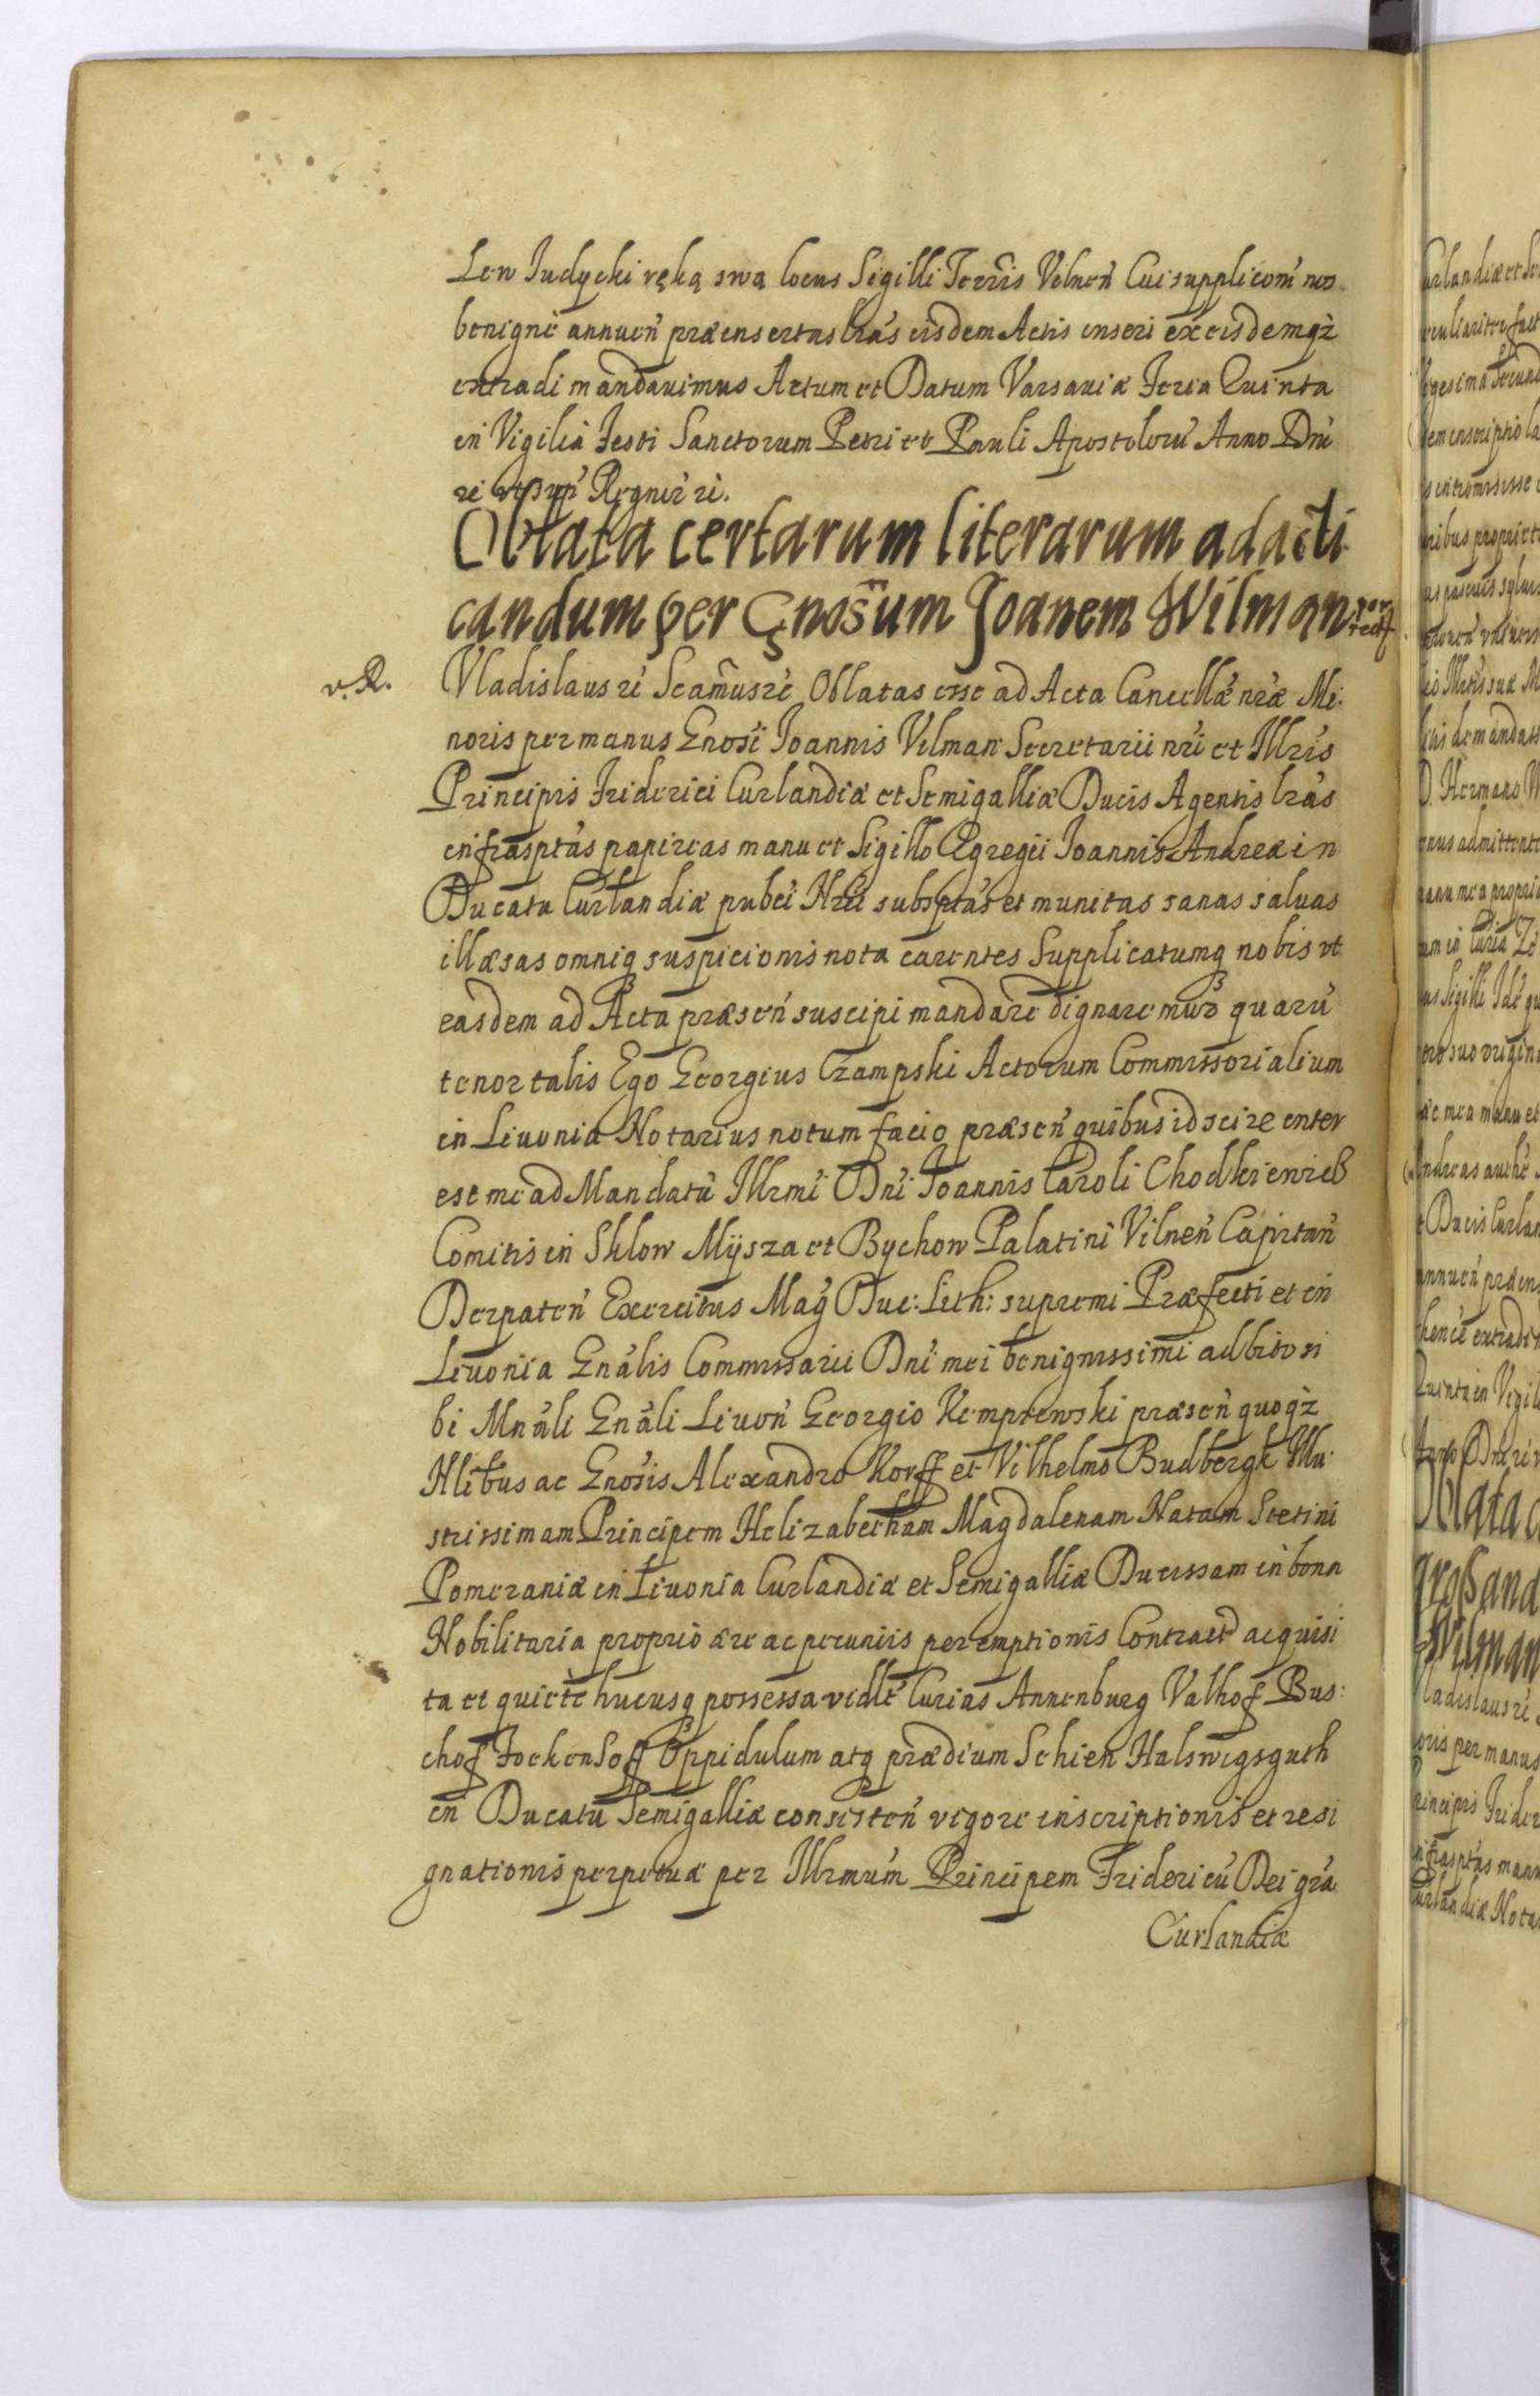 Lew Judycki ręką swą locus Sigilli Terris Vilneń Cui suppliconi nos
benigne annueń præinsertas lrás eisdem Actis inseri ex eisdemqz
extradi mandauimus Actum et Datum Varsauiæ Feria Quinta
in Vigilia Festi Sanctorum Petri et Pauli Apostolorũ Anno Dni
zc vt supr Regnizc zc.
Oblata certarum literarum ad acti
candum per Gnosum Joanem Wilman
v. R.
Vladislaus zc Seamuszc Oblatas esse ad Acta Cancellæ nræ Mi:
noris per manus Gnosi Joannis Vilman Secretarii nri et Illris
Principis Friderici Curlandiæ et Semigalliæ Ducis Agentis lrás
infrasptás papireas manu et Sigillo Egregii Joannis Andreæ in
Ducatu Curlandiæ pubci Nrii subsptás et munitas sanas saluas
illæsas omniq suspicionis nota carentes Supplicatumq nobis vt
easdem ad Acta præseń suscipi mandare dignaremur quarũ
tenor talis Ego Georgius Czampski Actorum Commissorialium
in Liuonia Notarius notum facio præseń quibus id scire inter
est me ad Mandatũ Illrmi Dni Joannis Caroli Chodkiewicz
Comitis in Sklow Mÿsza et Bychow Palatini Vilneń Capitań
Derpateń Exercitus Mag Duc: Lith: supremi Præfecti et in
Liuonia Gnális Commissarii Dni mei benignissimi adhibito si
bi Mnáli Gnáli Liuoń Georgio Kemptewski præseń quoqz
Nlibus ac Gnosis Alexandro Korff et Vilhelmo Budbergk Illu:
strissimam Principem Helizabetham Magdalenam Natam Stetini
Pomeraniæ in Liuonia Curlandiæ et Semigalliæ Ducissam in bona
Nobilitaria proprio ære ac pecuniis per emptionis Contractũ acquisi
ta et quiete hucusq possessa vidlt Curias Annenburg Valhof Bus:
chof Fockenhoff Oppidulum atq prædium Schien Halswigsguth
in Ducatu Semigalliæ consisteń vigore inscriptionis et resi
gnationis perpetuæ per Illrmum Principem Fridericũ Dei grá
Curlandiæ